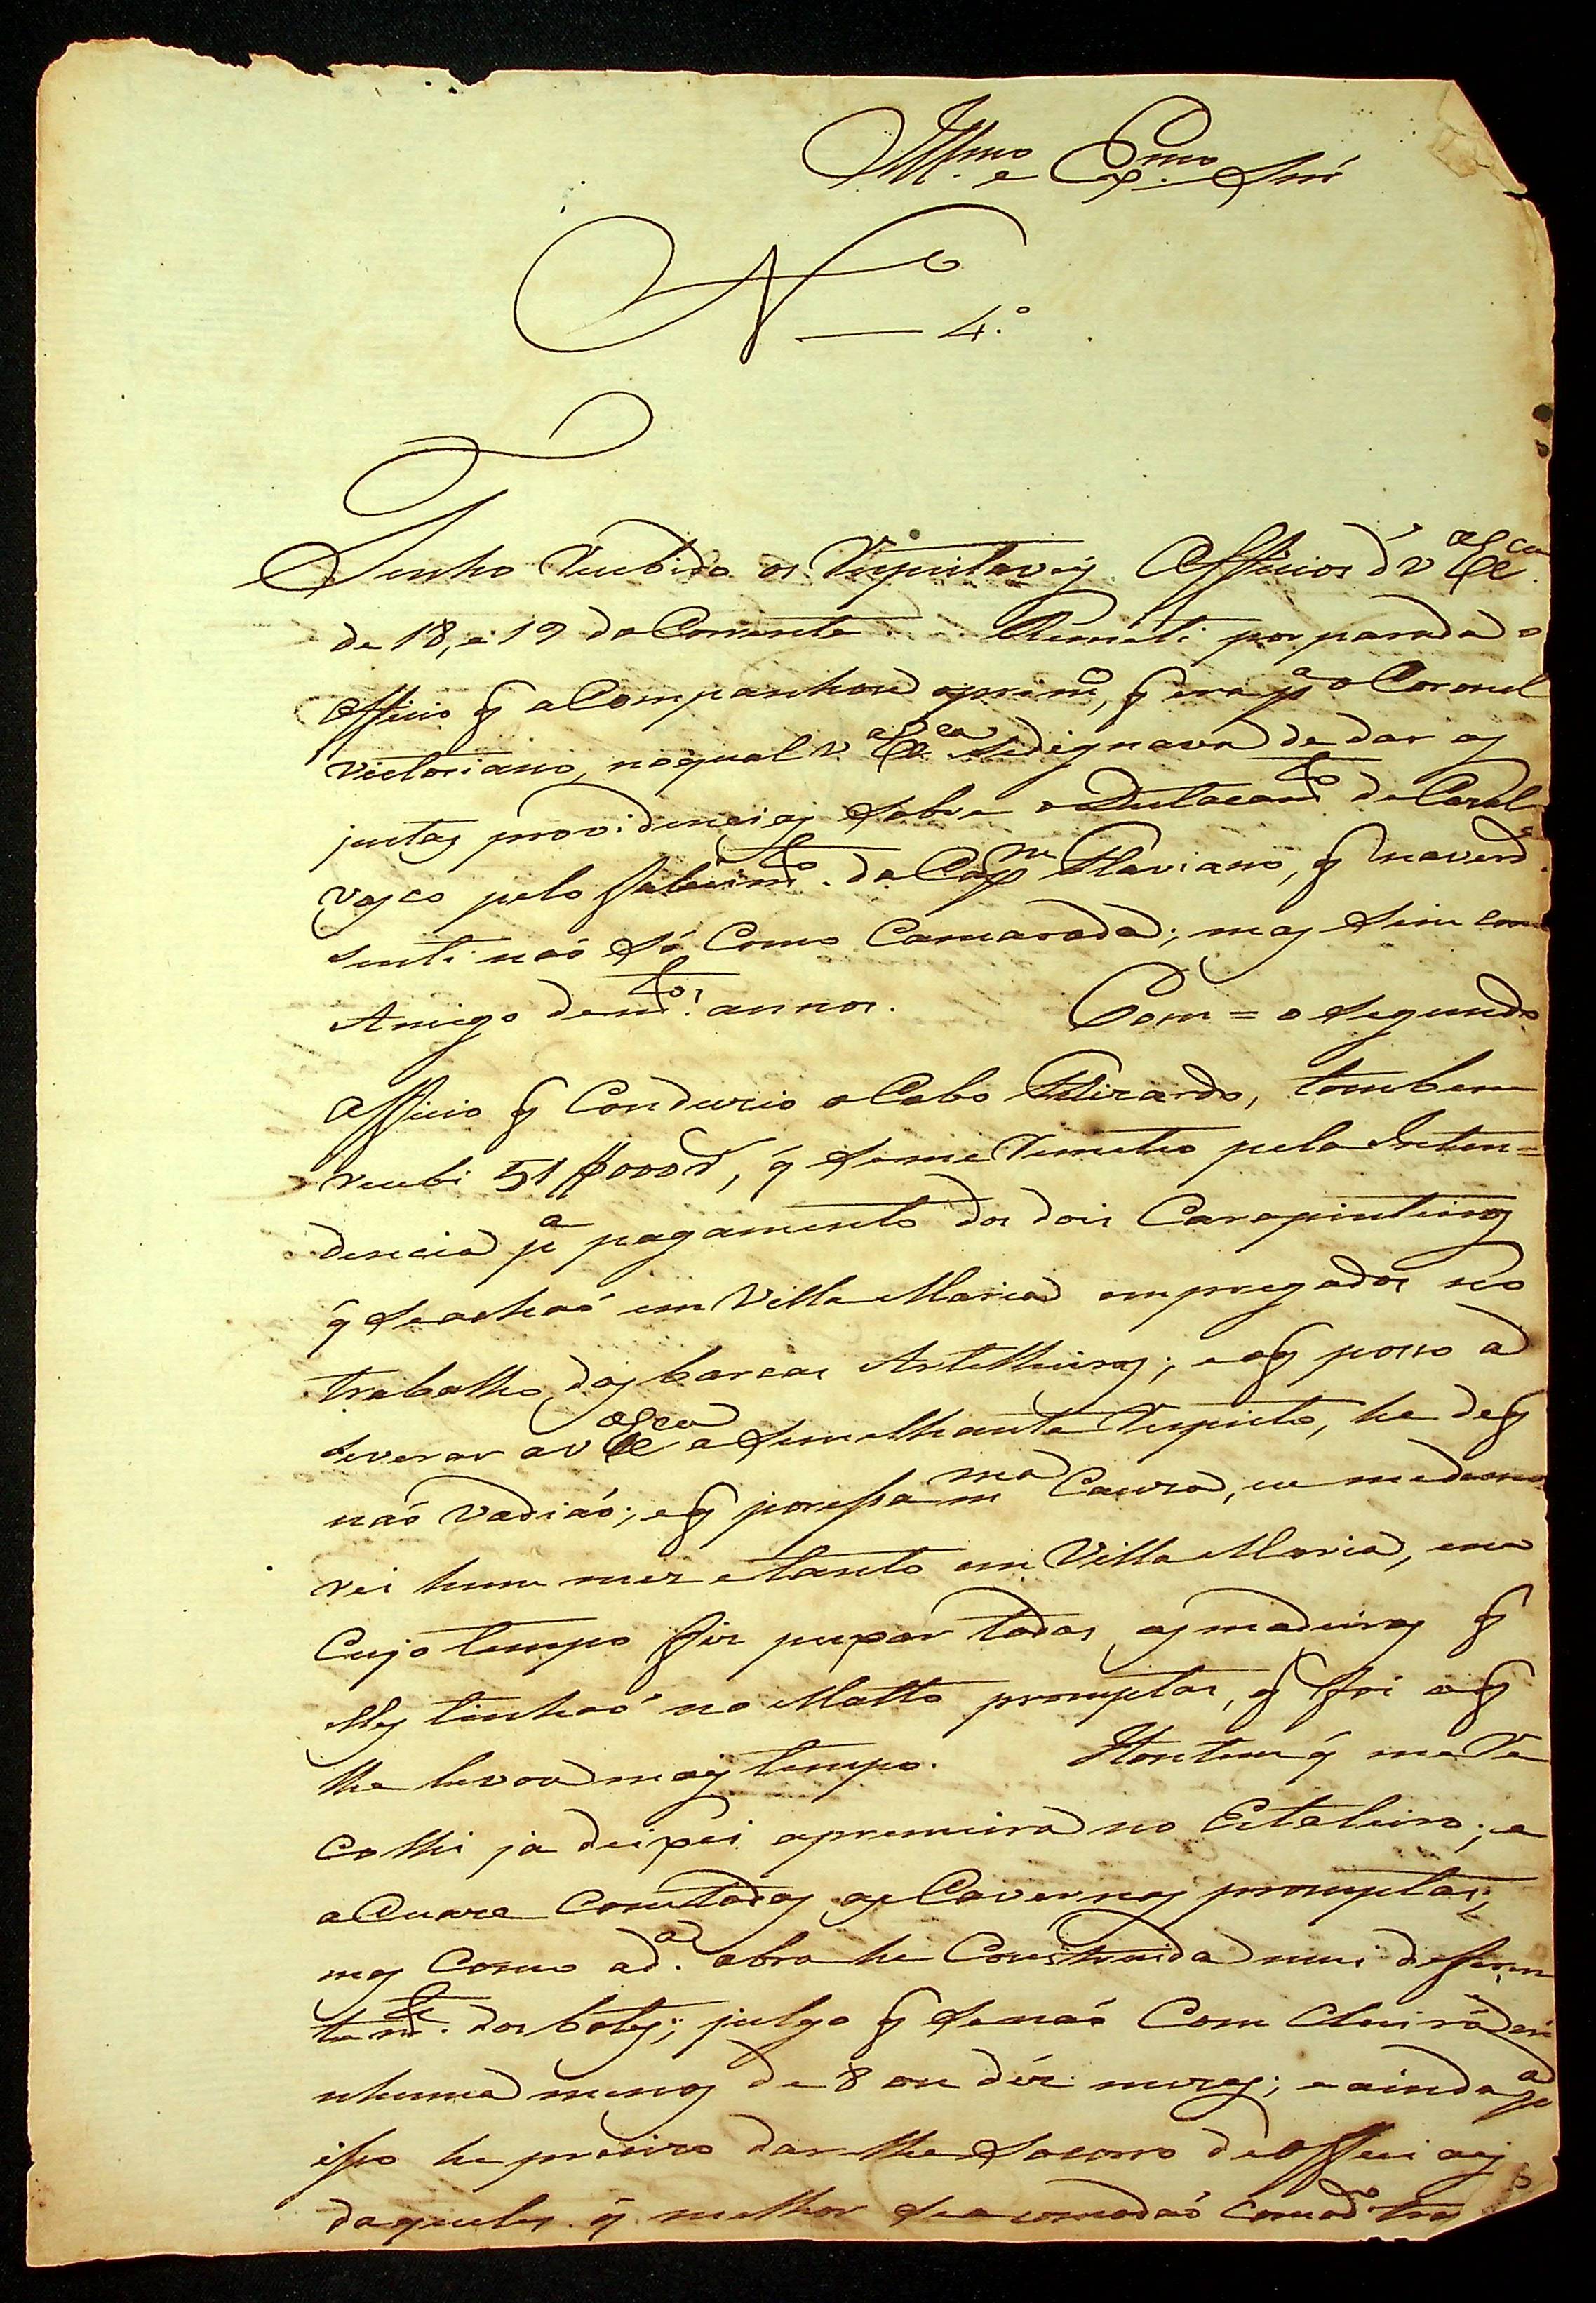 Ill.mo e Ex.mo Snr
N.o — 4.o
Tenho recebido os respeitaveis Officios d' V. Ex.ca
de 18, e 19 do Corrente. Remeti por parada o
officio q aCompanhou oprim.o, q era p.a o Coronel
Victoriano, noqual V. Ex.ca sedignava de dar as
justas providencias sobre o Destacam.to de Casal
vasco pelo falecim.to do Cap.m Flaviano, q naverd.e
senti naõ só Como Camarada; mas sim como
Amigo dem.tos annos. Com = o segundo
officio q Conduzio o Cabo Elizardo, tambem
recebi 51$000 r, q seme remeteo pela Inten=
dencia p.a pagamento dos dois Carapinteiros
q seachaõ em Villa Maria empregados no
trabalho das barcas Artilheiras; eoq posso a
severar a V Ex.ca a semilhante respeito, he deq
naõ vadiaõ; eq poressa m.ma Cauza, eu medemo
rei hum mez etanto em Villa Maria, em
Cujo tempo fiz puxar todas as madeiras q
elles tinhaõ no Matto promptas, q foi oq
lhe levou mais tempo. Hontem q me re
colhi ja deixei apremeira no Estaleiro; e
aCuaze Comtodas as Cavernas promptas;
mas Como ad.a obra he Construida mui deferen
tem.te dos botes; julgo q senaõ Comcluirá ni
nhuma menos de 8 ou déz mezes; eainda p.a
isso he precizo dar lhe socorro deOfficiaes
daqueles q melhor seacomodaõ comod.o tra